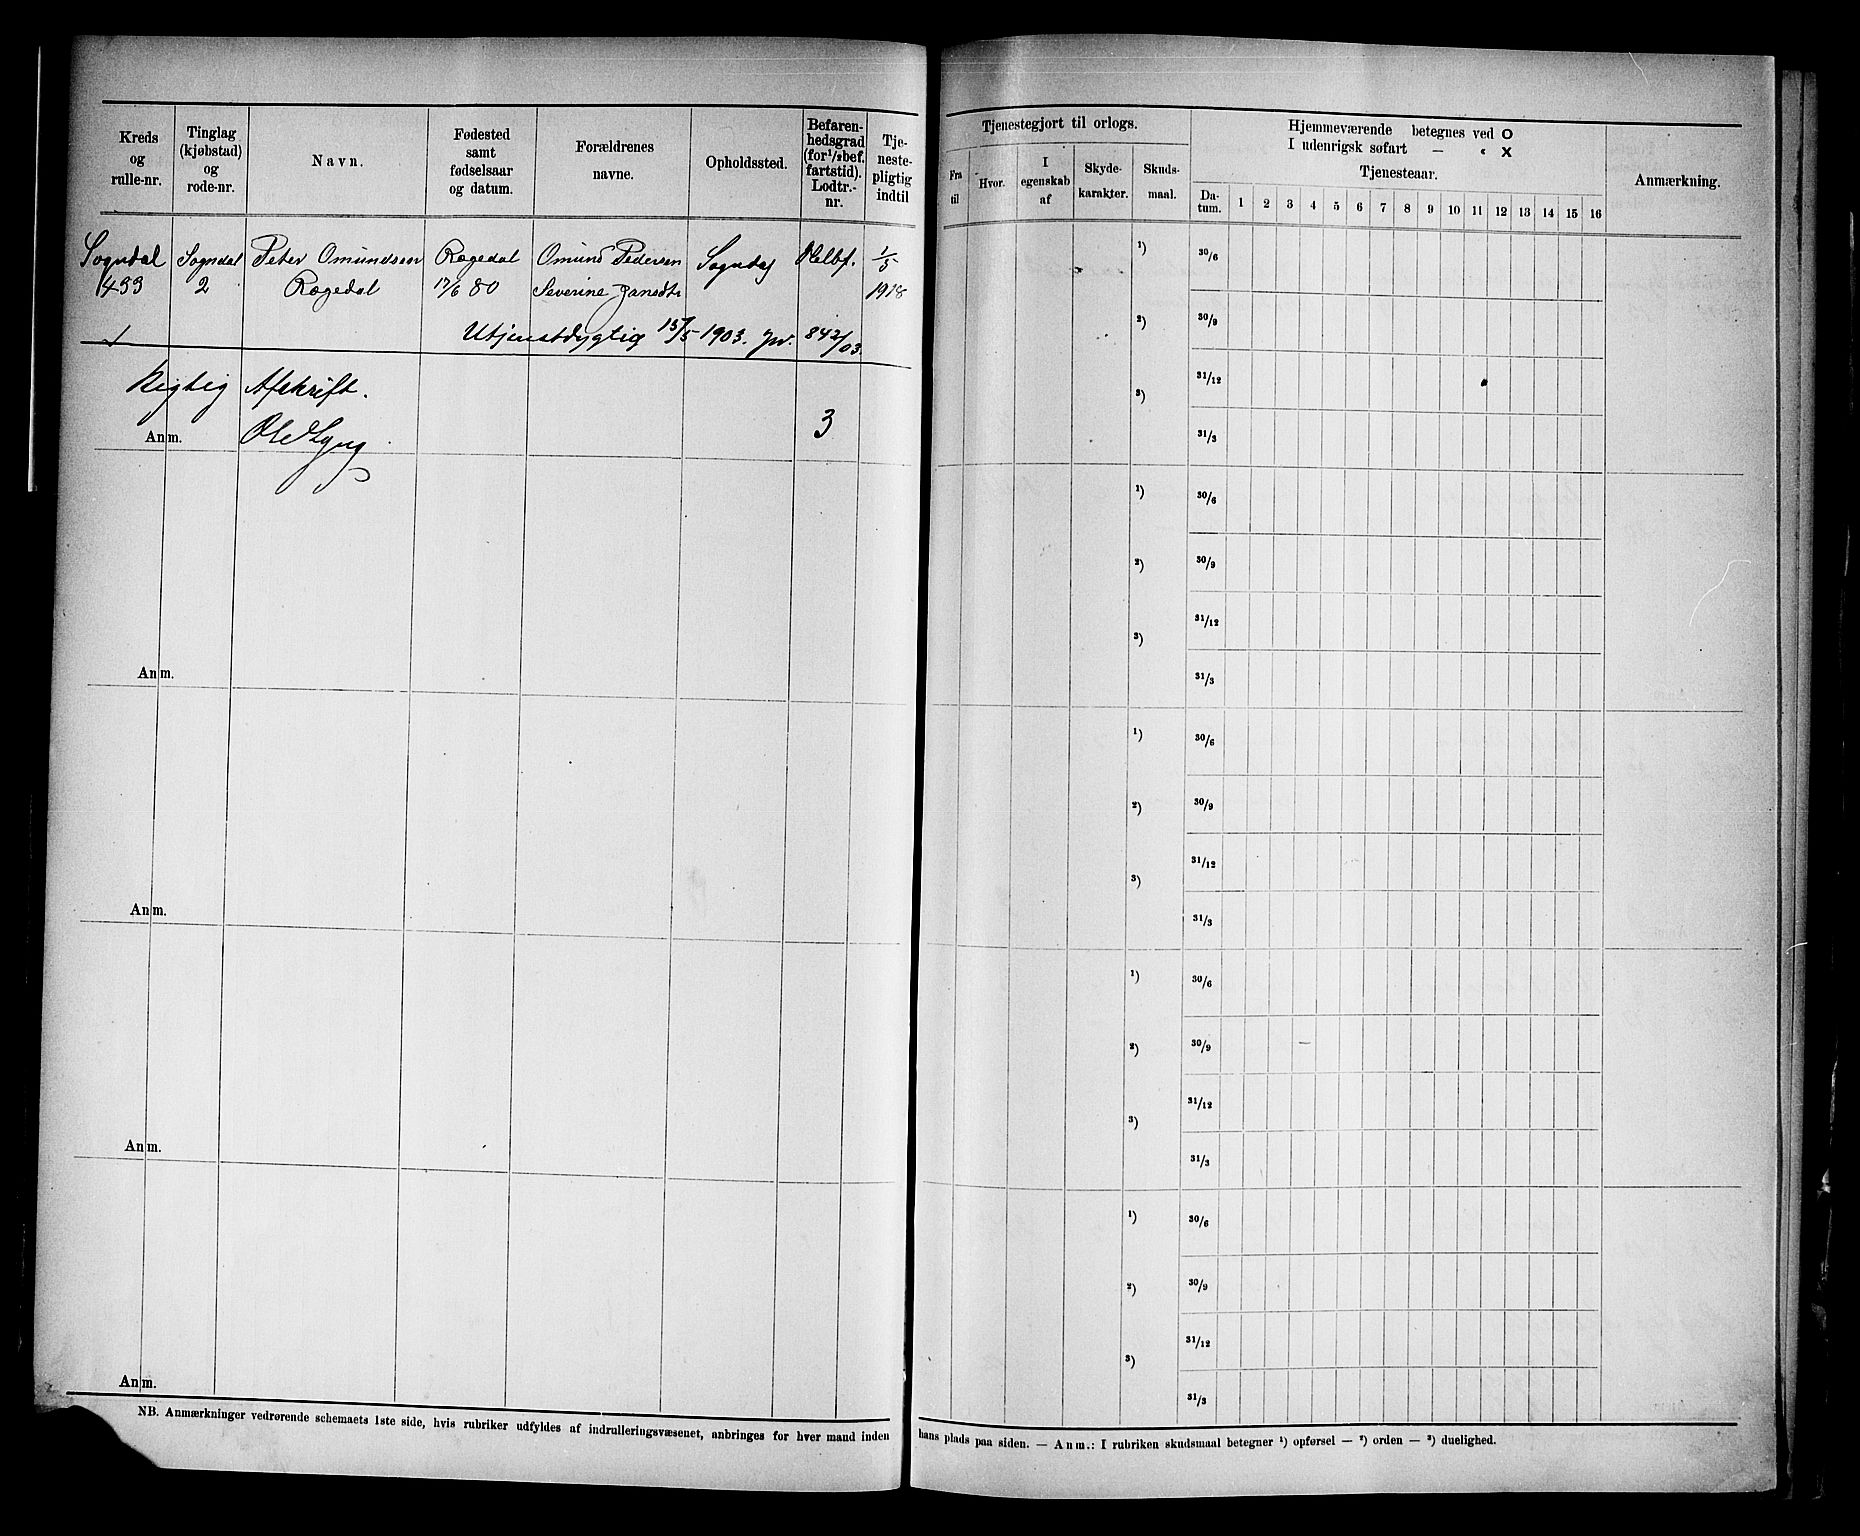 Kreds
og
rulle-nr.
Tinglag
(kjøbstad)
og
rode-nr.
Navn.
Fødested
samt
fødselsaar
og datum.
Forældrenes
navne.
Opholdssted.
Befaren-
hedsgrad
(for ½bef.
fartstid).
Lodtr.-
nr.
Tje-
neste-
pligtig
indtil
Sogndal
433
Sogndal
2
Peter Omundsen
Rægedal
Rægedal
17/6 80
Omund Pedersen
Severine Jansdtr
Sogndal
Helbf.
1/5
1918
Utjenstdygtig 15/5 1903. jvr. 842/03.
Rigtig Afskrift.
3
Anm.
Anm.
Anm.
Anm.
Anm.
NB. Anmærkninger vedrørende schemaets 1ste side, hvis rubriker udfyldes af indrulleringsvæsenet, anbringes for hver mand inden
Tjenestegjort til orlogs.
Fra
til
Hvor.
I
egenskab
af
Skyde-
karakter.
Skuds-
maal.
Hjemmeværende betegnes ved O
I udenrigsk søfart — « X
Tjenesteaar.
Da-
tum.
1 2 3 4 5 6 7 8 9 10 11 12 13 14 15 16
Anmærkning.
¹) 30/6
²) 30/9
³) 31/12
31/3
¹) 30/6
²) 30/9
³) 31/12
31/3
¹) 30/6
²) 30/9
³) 31/12
31/3
¹) 30/6
²) 30/9
³) 31/12
31/3
¹) 30/6
²) 30/9
³) 31/12
31/3
hans plads paa siden. — Anm.: I rubriken skudsmaal betegner ¹) opførsel — ²) orden — ³) duelighed.